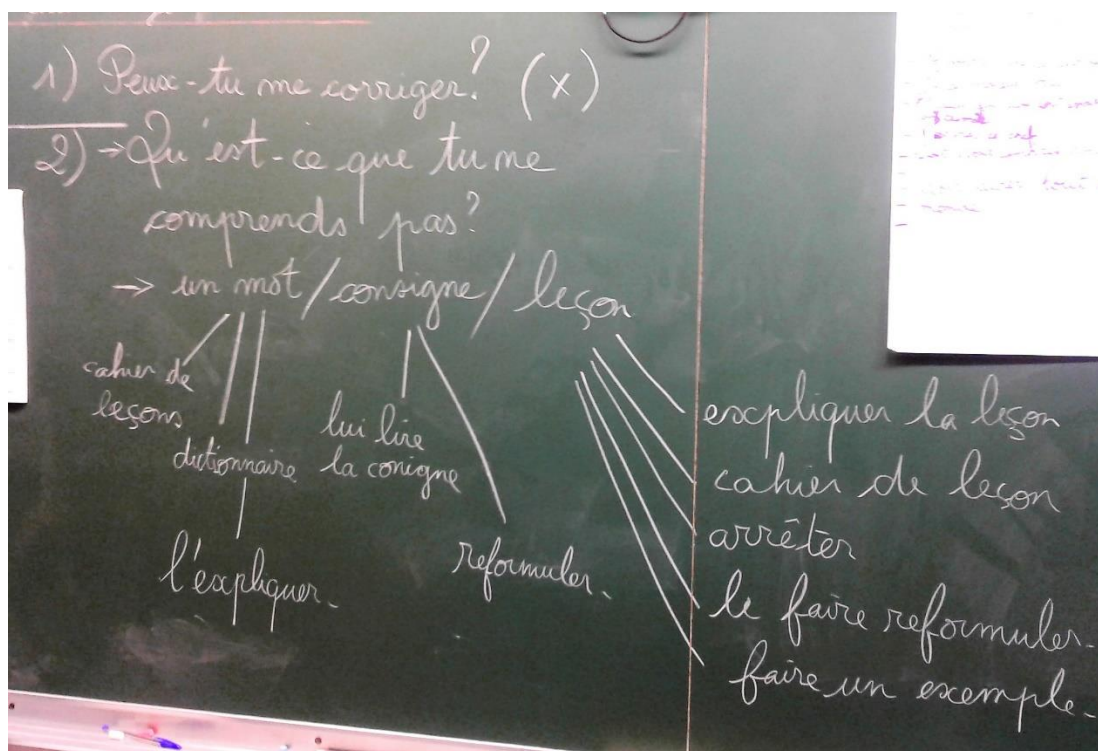 1) Peux-tu me corriger? (x)
2) → Qu'est-ce que tu ne
comprends pas?
→ un mot / consigne / leçon
cahier de
leçons
dictionnaire
l'expliquer.
lui lire
la conigne
reformuler.
expliquer la leçon
cahier de leçon
arrêter
le faire reformuler.
faire un exemple.